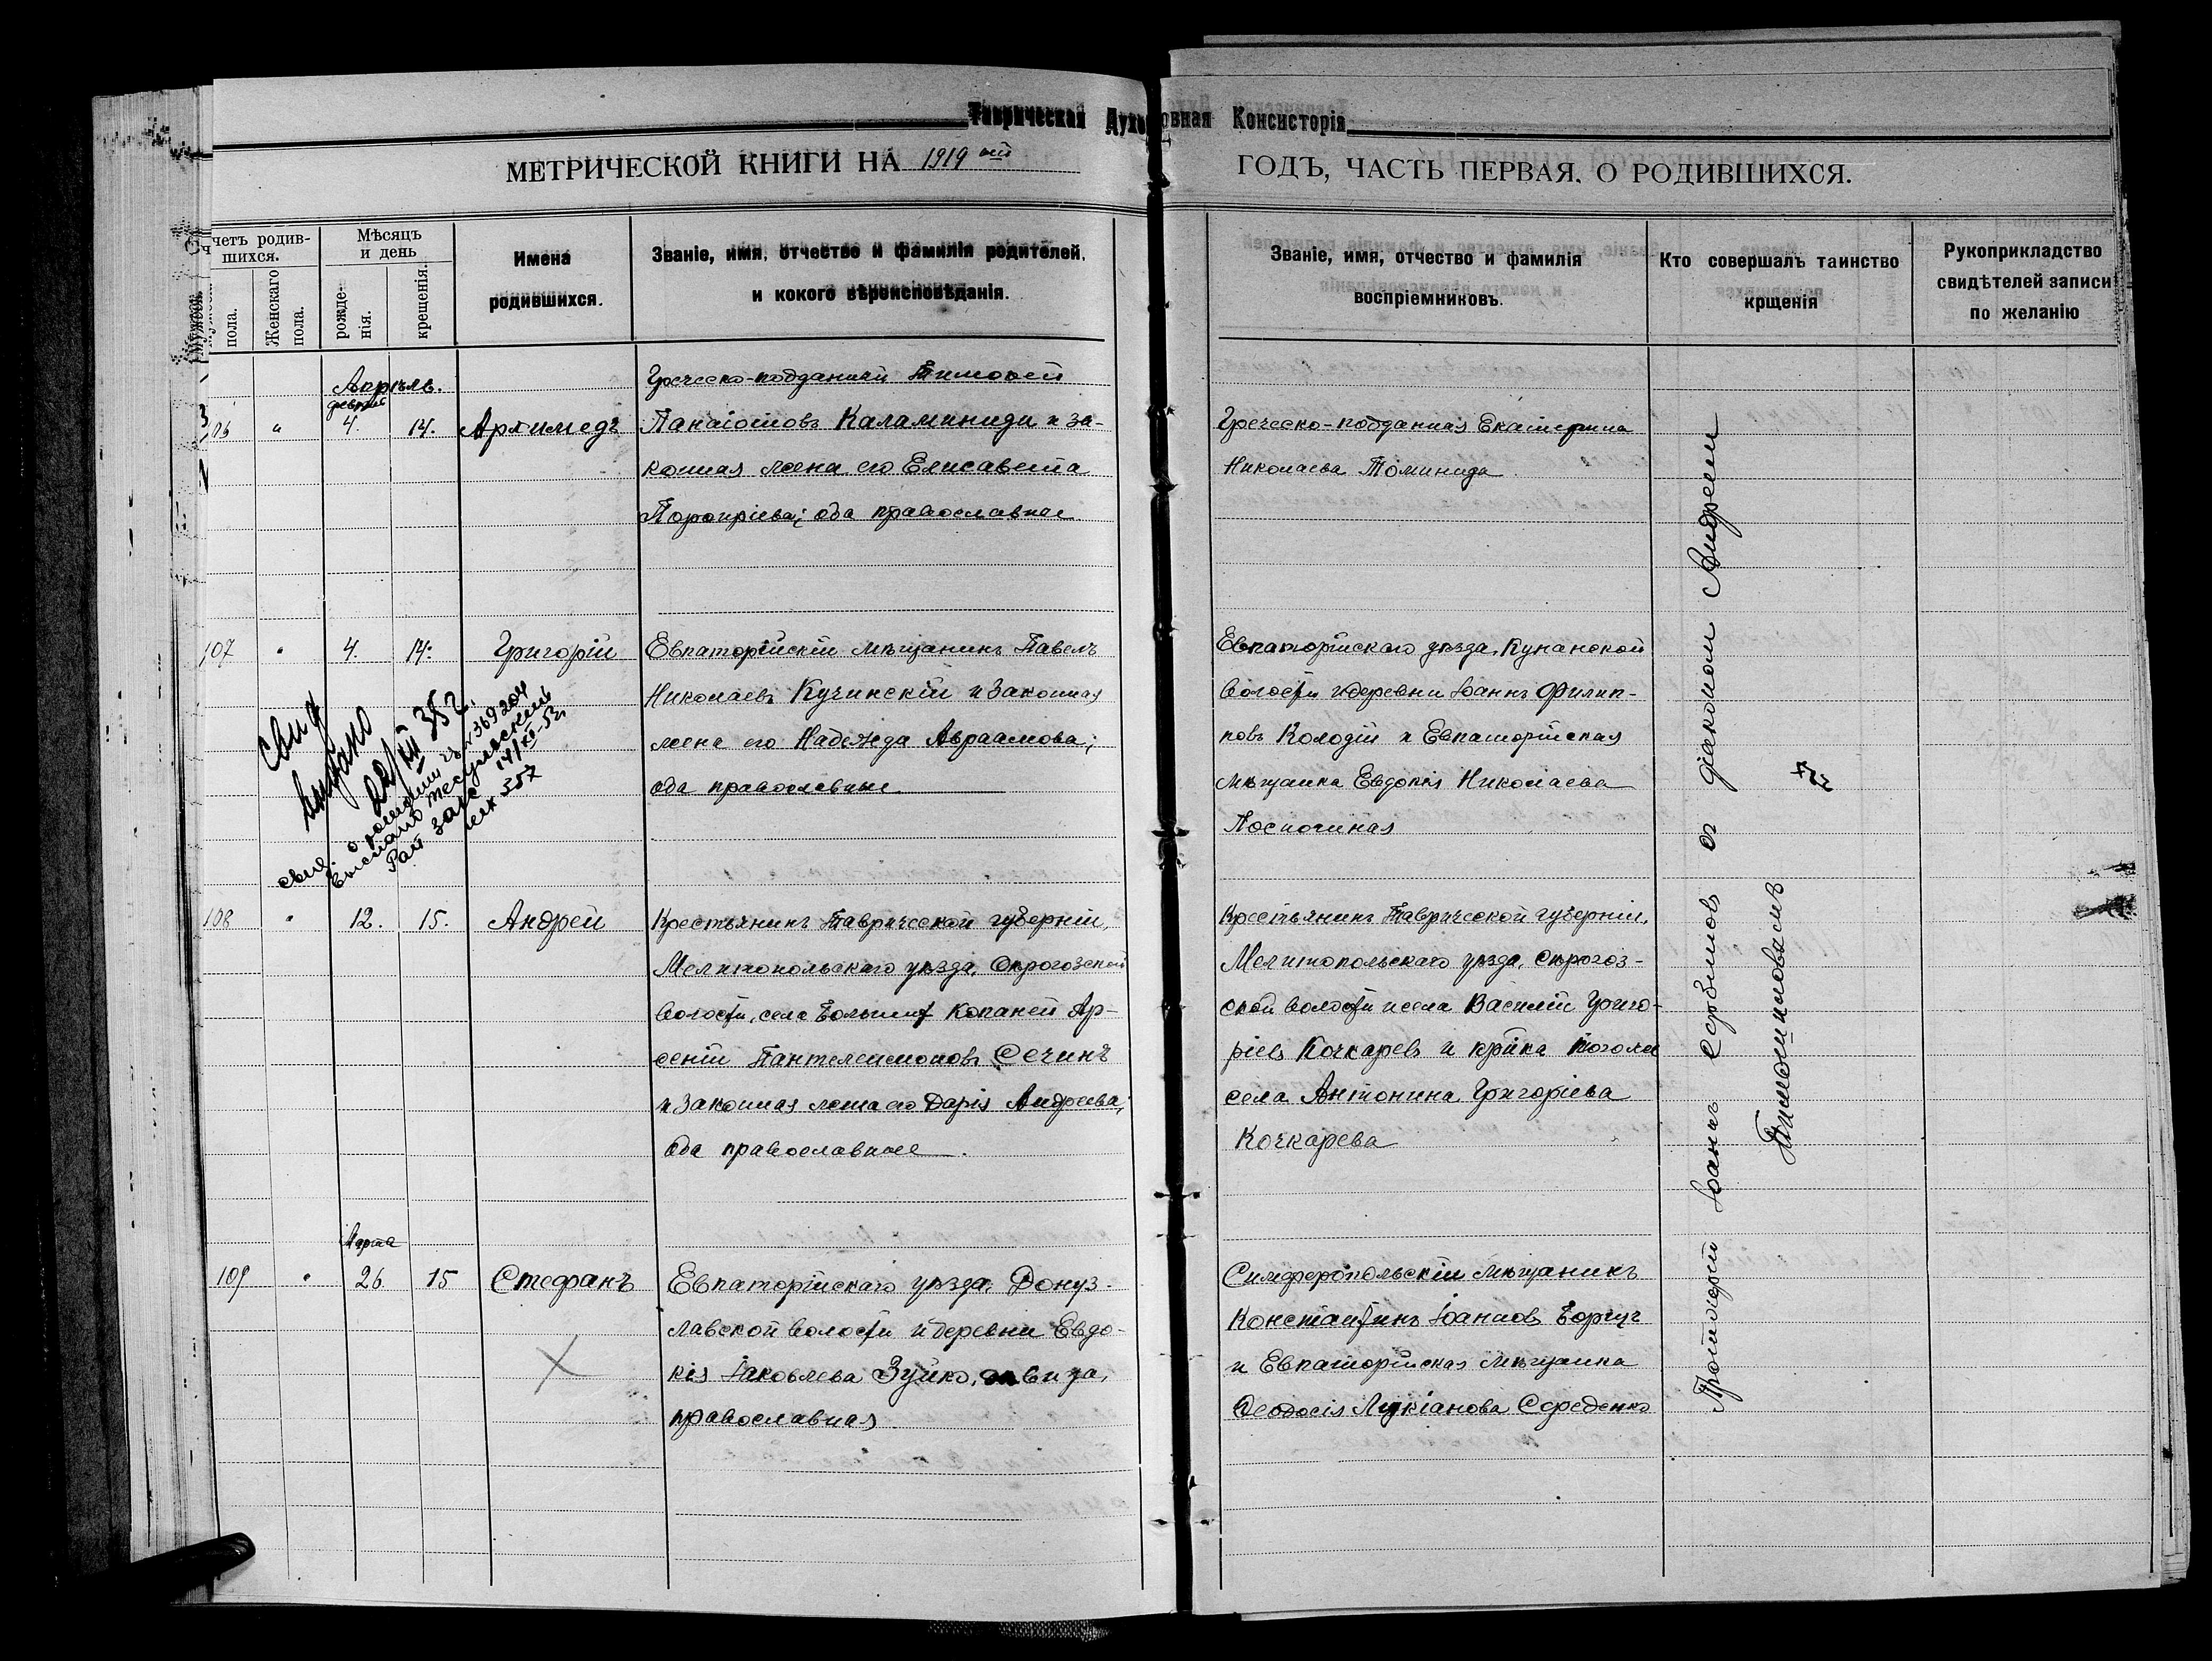 Таврическая Духовная Консисторія
МЕТРИЧЕСКОЙ КНИГИ НА 1919 ый ГОДЪ, ЧАСТЬ ПЕРВАЯ. О РОДИВШИХСЯ.
Счетъ родив-
шихся.
пола.
Женскаго
пола.
Мѣсяцъ
и день
рожде-
нія.
крещенія.
Имена
родившихся.
Званіе, имя, отчество и фамилія родителей,
и кокого вѣроисповѣданія.
Званіе, имя, отчество и фамилія
воспріемниковъ.
Кто совершалъ таинство
крщенія
Рукоприкладство
свидѣтелей записи
по желанію
Апрѣль.
4. 14. Архимедъ
Греческо-подданный Тимоѳей
Панаіотовъ Каламиниди и за-
конная жена его Елисавета
Порфиріева; оба православные
Греческо-подданная Екатерина
Николаева Томинида
107 " 4. 14. Григорій
Евпаторійскій мѣщанинъ Павелъ
Николаевъ Кучинскій и законная
жена его Надежда Авраамова;
оба православные
Евпаторійскаго уѣзда, Кунанской
волости и деревни Іоаннъ Филип-
повъ Колодій и Евпаторійская
мѣщанка Евдокія Николаева
свид
выдано
22/III 38 г.
свид. о рожден
выслано
Рай загс 14/XII-53
108 " 12. 15. Андрей
Крестьянинъ Таврической губерніи,
Мелитопольскаго уѣзда,
волости, села Большихъ Копаней Ар-
сеній Пантелеимоновъ Сечинъ
и законная жена его Дарія Андреева;
оба православные
Крестьянинъ Таврической губерніи,
Мелитопольскаго уѣзда,
ской волости и села Василій Григо-
ріевъ Кочкаревъ и кр-нка того же
села Антонина Григоріева
Кочкарева
Марта
109 " 26 15 Стефанъ
Евпаторійскаго уѣзда, Донуз-
лавской волости и деревни Евдо-
кія Іаковлева Зуйко, дѣвица,
православная
Симферопольскій мѣщанинъ
Константинъ Іоанновъ Борщъ
и Евпаторійская мѣщанка
Ѳеодосія Лукіанова Середенко
Протоіерей Іоаннъ Сербиновъ съ діакономъ Андреемъ
Тимошиновымъ